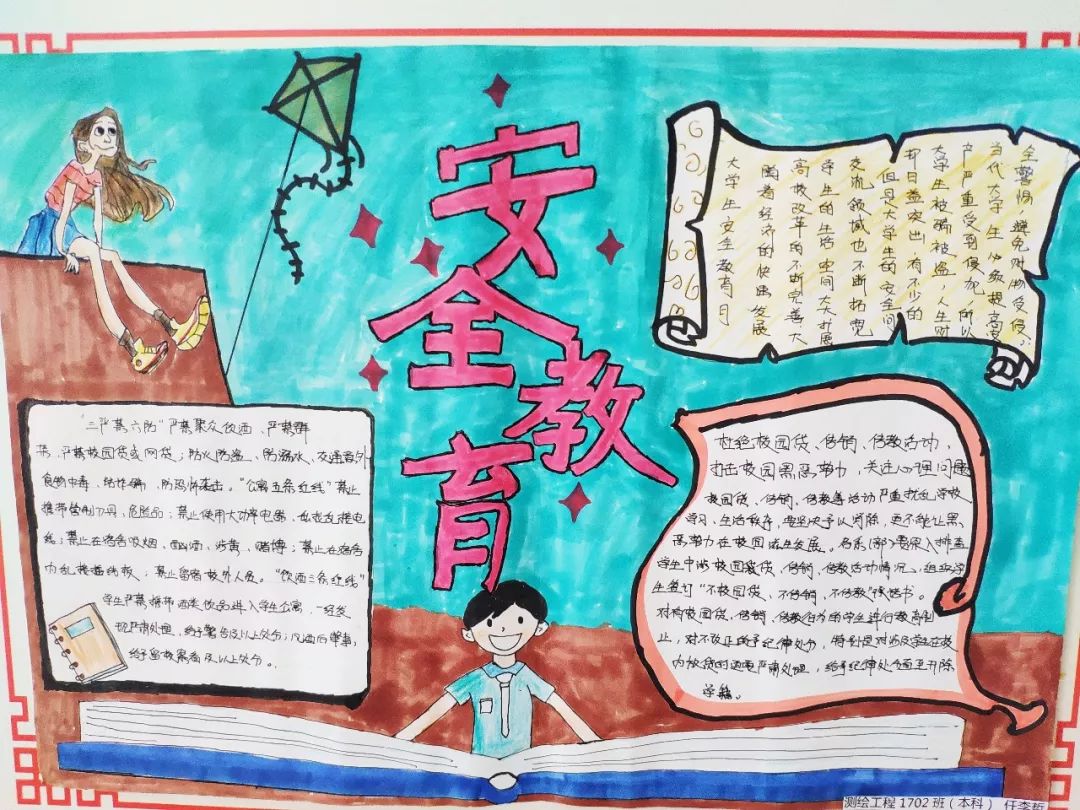 安全教育
大学生安全教育月
随着经济的快速发展
高校改革的不断完善,大
学生的生活空间大大扩展
交流领域也不断拓宽
但是大学生的安全问
却日益突出,有不少的
大学生被骗被盗,人生财
产严重受到侵犯,所以
当代大学生必须提高安
全警惕,避免财物受侵。
"三严禁六防"严禁聚众饮酒、严禁群
架、严禁校园贷或网贷;防火防盗、防溺水、交通意外
食物中毒、结诈骗、防恐怖袭击。"公寓五条红线"禁止
携带管制刀具、危险品;禁止使用大功率电器、私拉乱接电
线;禁止在宿舍吸烟、酗酒、涉黄、赌博;禁止在宿舍
内乱接插线板;禁止留宿校外人员。"饮酒三条红线"
学生严禁携带酒类饮品进入学生公寓,一经发
现严肃处理,给予警告及以上处分;凡酒后肇事,
给予留校察看及以上处分。
杜绝校园贷、传销、传教活动,
打击校园黑恶势力,关注心理问题
校园贷、传销、传教等活动严重扰乱学校
学习、生活秩序,要坚决予以消除,更不能让黑
恶势力在校园滋生发展。各系(部)需深入排查
学生中涉校园贷、传销、传教活动情况,组织学
生签订"不校园贷、不传销、不传教"承诺书。
对有校园贷、传销、传教行为的学生进行教育制
止,对不改正的予纪律处分,特别是对涉及在校
内放贷的要严肃处理,给予纪律处分直至开除
学籍。
测绘工程1702班(本科) 任李哲